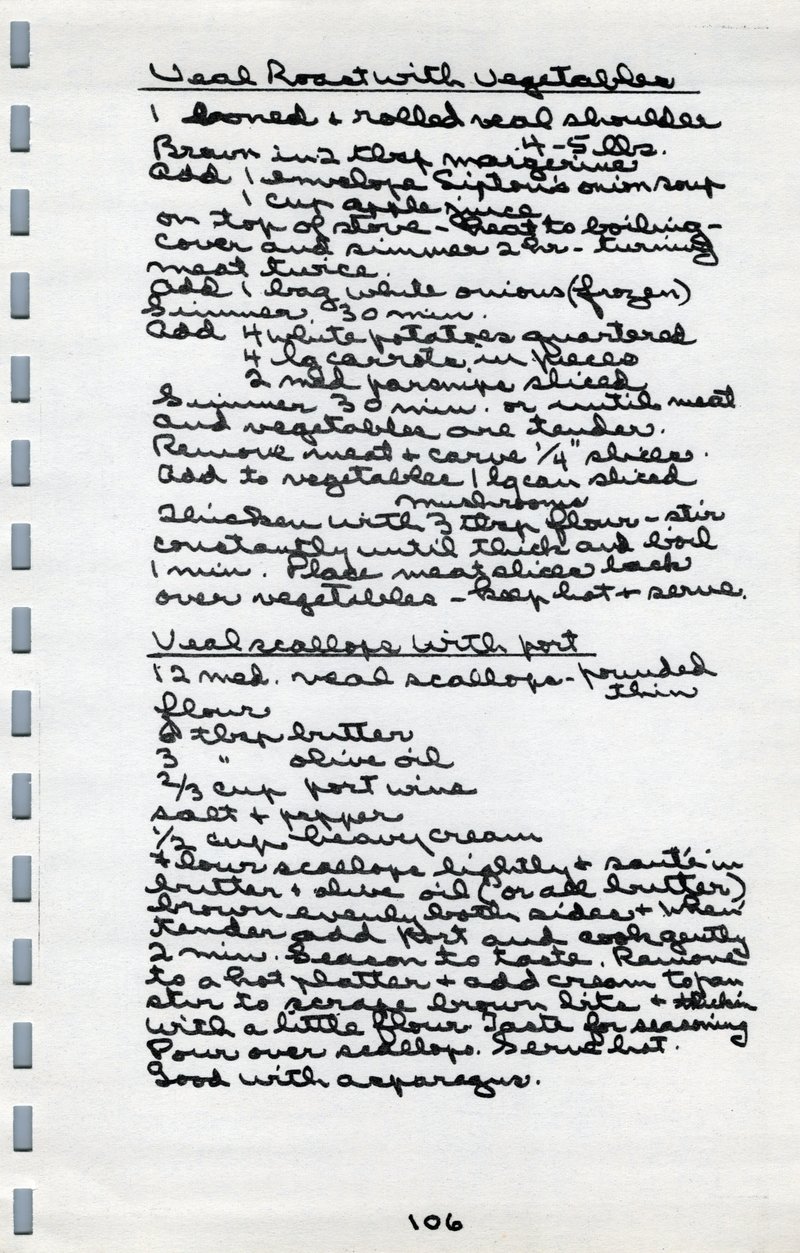 Veal Roast with Vegetables
1 boned + rolled veal shoulder
4-5 lbs.
Brown in 2 tbsp margerine
Add 1 envelope Lipton's onion soup
1 cup apple juice
on top of stove - heat to boiling -
cover and simmer 2 hr - turning
meat twice.
Add 1 bag white onions (frozen)
Simmer 30 min.
Add 4 white potatoes quartered
4 lg carrots in pieces
2 med parsnips sliced
Simmer 30 min. or until meat
and vegetables are tender.
Remove meat + carve 1/4" slices.
Add to vegetables 1 lg can sliced
mushrooms
Thicken with 3 tbsp flour - stir
constantly until thick and boil
1 min. Place meat slices back
over vegetables - keep hot + serve.
Veal scallops with port
12 med. veal scallops - pounded
thin
flour
tbsp butter
3 " olive oil
2/3 cup port wine
salt + pepper
1/2 cup heavy cream
Flour scallops lightly + sauté in
butter + olive oil (or all butter)
brown evenly both sides + when
tender add port and cook gently
2 min. Season to taste. Remove
to a hot platter + add cream to pan
stir to scrape brown bits + thicken
with a little flour. Taste for seasoning
Pour over scallops. Serve hot.
Good with asparagus.
106